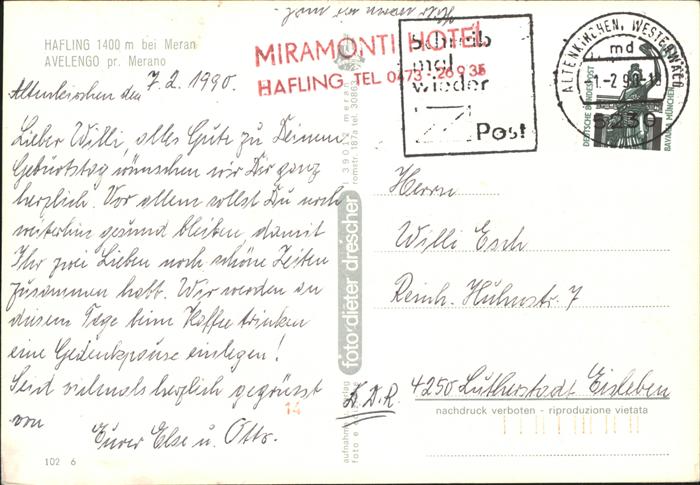 HAFLING 1400 m bei Meran
AVELENGO pr. Merano
MIRAMONTI HOTEL
HAFLING TEL 0473-26935
Schreib
mal
wieder
Post
ALTENKIRCHEN, WESTERWALD
md
-2.90-
5230
DEUTSCHE BUNDESPOST
BAVARIA MÜNCHEN
Altenkirchen den 7.2.1990.
Lieber Willi, alles Gute zu Deinem
Geburtstag wünschen wir Dir ganz
herzlich. Vor allem sollst Du noch
weiterhin gesund bleiben, damit
Ihr zwei Lieben noch schöne Zeiten
zusammen habt. Wir werden an
diesem Tage beim Kaffee trinken
eine Gedenkpause einlegen!
Seid vielmals herzlich gegrüsst
von
Eurer Else u. Otto.
14
102 6
foto·dieter drescher
I 39012 meran
romstr. 187a tel. 3086
Herrn
Willi Esch
Reinh. Huhnstr. 7
D.D.R. 4250 Lutherstadt Eisleben
nachdruck verboten - riproduzione vietata